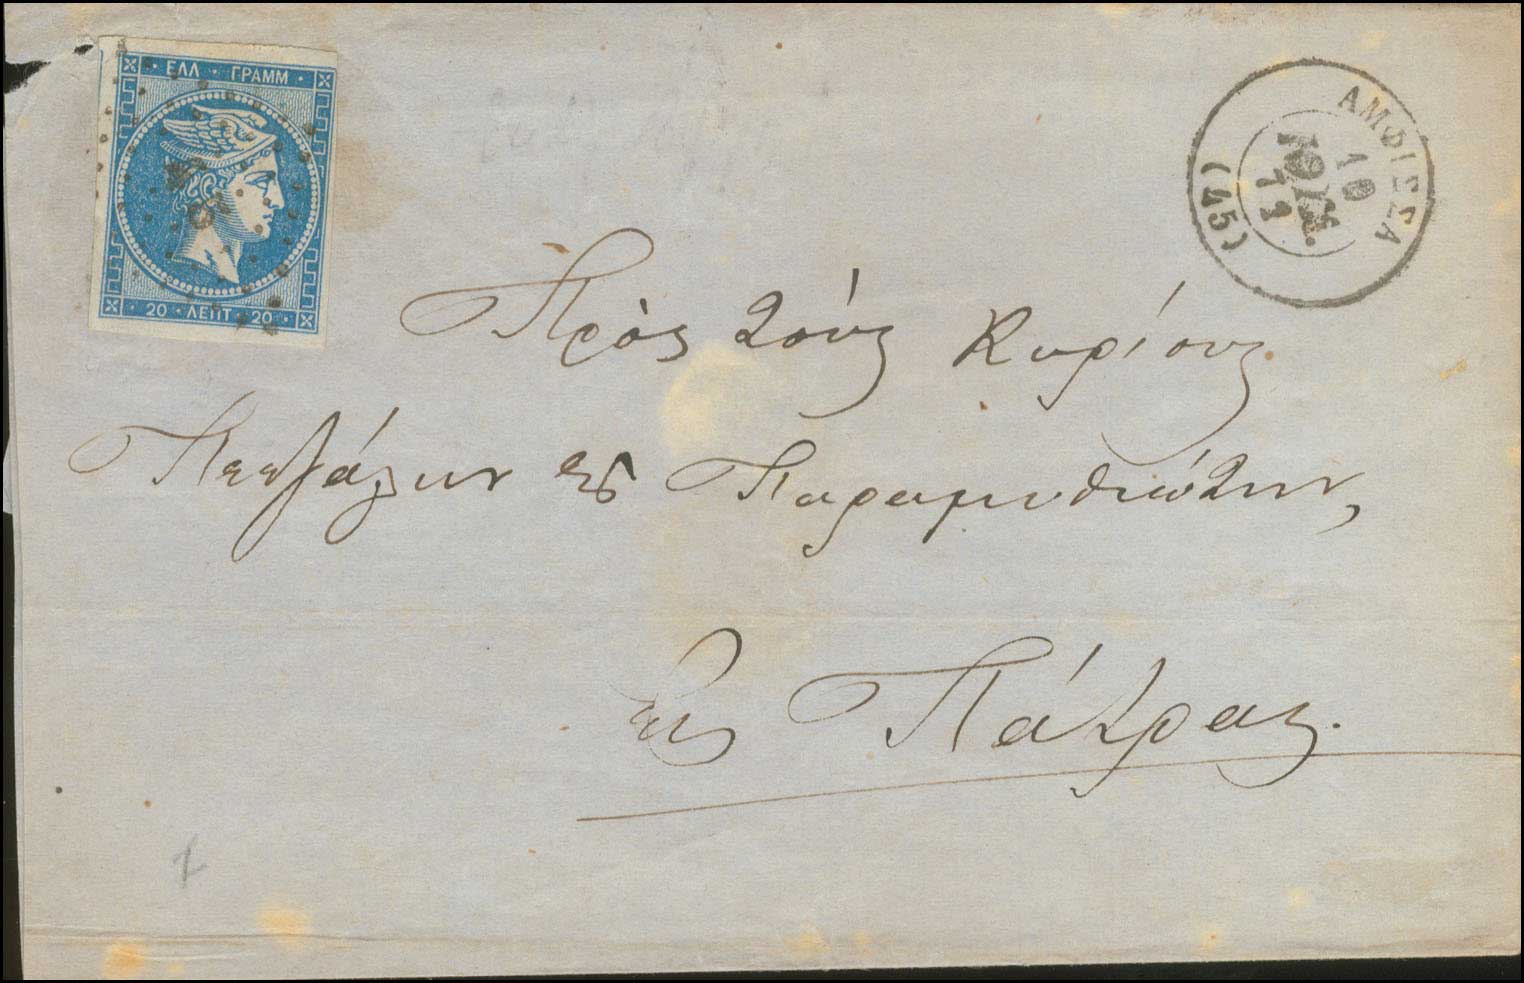 ΕΛΛ · ΓΡΑΜΜ
20 · ΛΕΠΤ · 20
45
ΑΜΦΙΣΣΑ
10
71
(45)
Πρὸς τοὺς Κυρίους
Παραμυθιώτην,
εἰς Πάτρας.